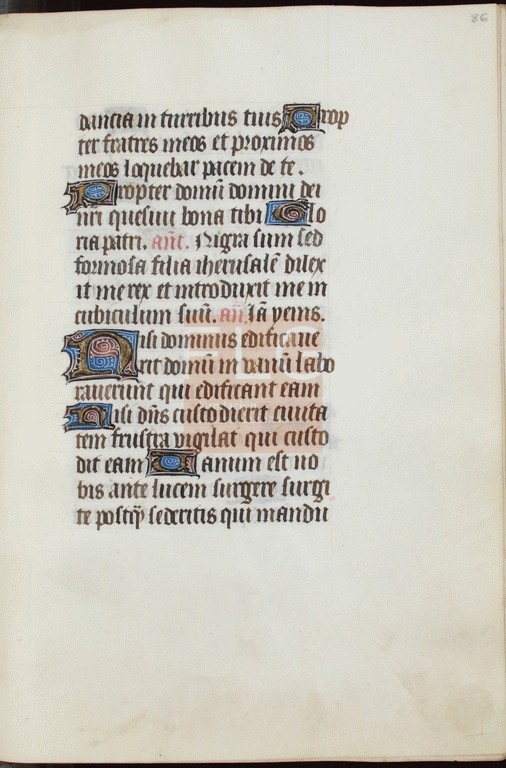 86
dancia in turribus tuis Prop
ter fratres meos et proximos
meos loquebar pacem de te.
Propter domū domini dei
nr̄i quesiui bona tibi Glo
ria patri. an̄t. Nigra sum sed
formosa filia iherusalē dilex
it me rex et introduxit me in
cubiculum suū. an̄. Iā yems.
Nisi dominus edificaue
rit domū in vanū labo
rauerunt qui edificant eam
Nisi dn̄s custodierit ciuita
tem frustra vigilat qui custo
dit eam Vanum est uo
bis ante lucem surgere surgi
te postq̄ sederitis qui mandu